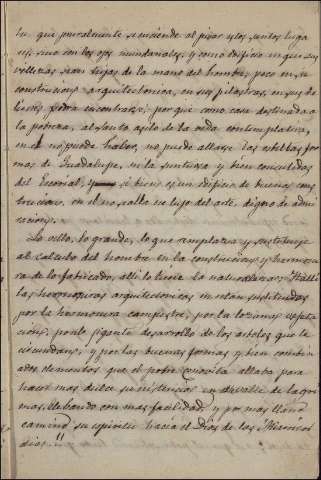 lu, que puramente se enciende al pisar estos santos luga
res, sino con los ojos mundanales, y como edificio en que sus
bellezas sean hijas de la mano del hombre, poco en su
construccion arquitectonica, en sus pilastras, en sus do
podrá encontrarse: por que como casa destinada a
la pobreza, al santo asilo de la vida contemplativa,
en el no puede haber, no pudo allarse las esbeltas for
mas de Guadalupe, ni la suntuosa y bien concluidas
del Escorial, si bien es un edificio de buenas cons
trucciones, en el no, salta un lujo del arte, digno de admi
racion.
Lo bello, lo grande, lo que remplaza y sustituye
al calculo del hombre en la construccion y hermosu
ra de lo fabricado, alli lo tiene la naturaleza: Halli
las hermosuras arquitectonicas estan sustituidas
por la hermosura campestre, por la lozana vejeta
cion, por el gigante desarrollo de los arboles que le
circundan, y por las buenas formas y bien combi
nados elementos que el pobre cenobita allaba para
hacer mas dulce su existencia en este valle de lagri
mas, elebando con mas facilidad, y por mas llano
camino su espiritu hacia el Dios de las Misericor
dias.